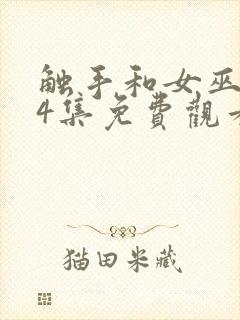 触手和女巫
4集免費觀
猫田米藏